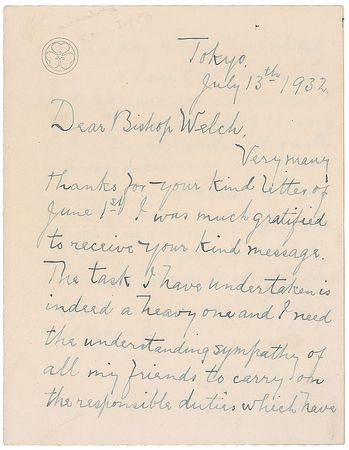 Tokyo.
July 13th 1932.
Dear Bishop Welch,
Very many
thanks for your kind letter of
June 1st. I was much gratified
to receive your kind message.
The task I have undertaken is
indeed a heavy one and I need
the understanding sympathy of
all my friends to carry on
the responsible duties which have